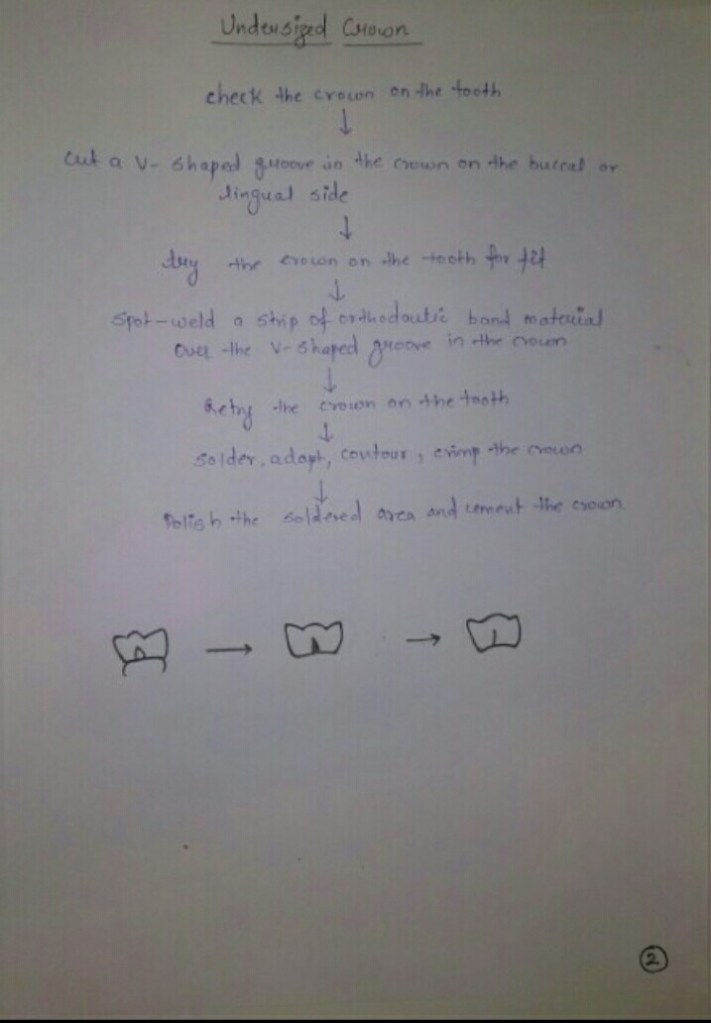 Undersized Crown
check the crown on the tooth
↓
Cut a V-shaped groove in the crown on the buccal or
lingual side
↓
try the crown on the tooth for fit
↓
Spot-weld a strip of orthodontic band material
Over the V-shaped groove in the crown
↓
Retry the crown on the tooth
↓
Solder, adapt, contour, crimp the crown
↓
Polish the soldered area and cement the crown
→ →
2